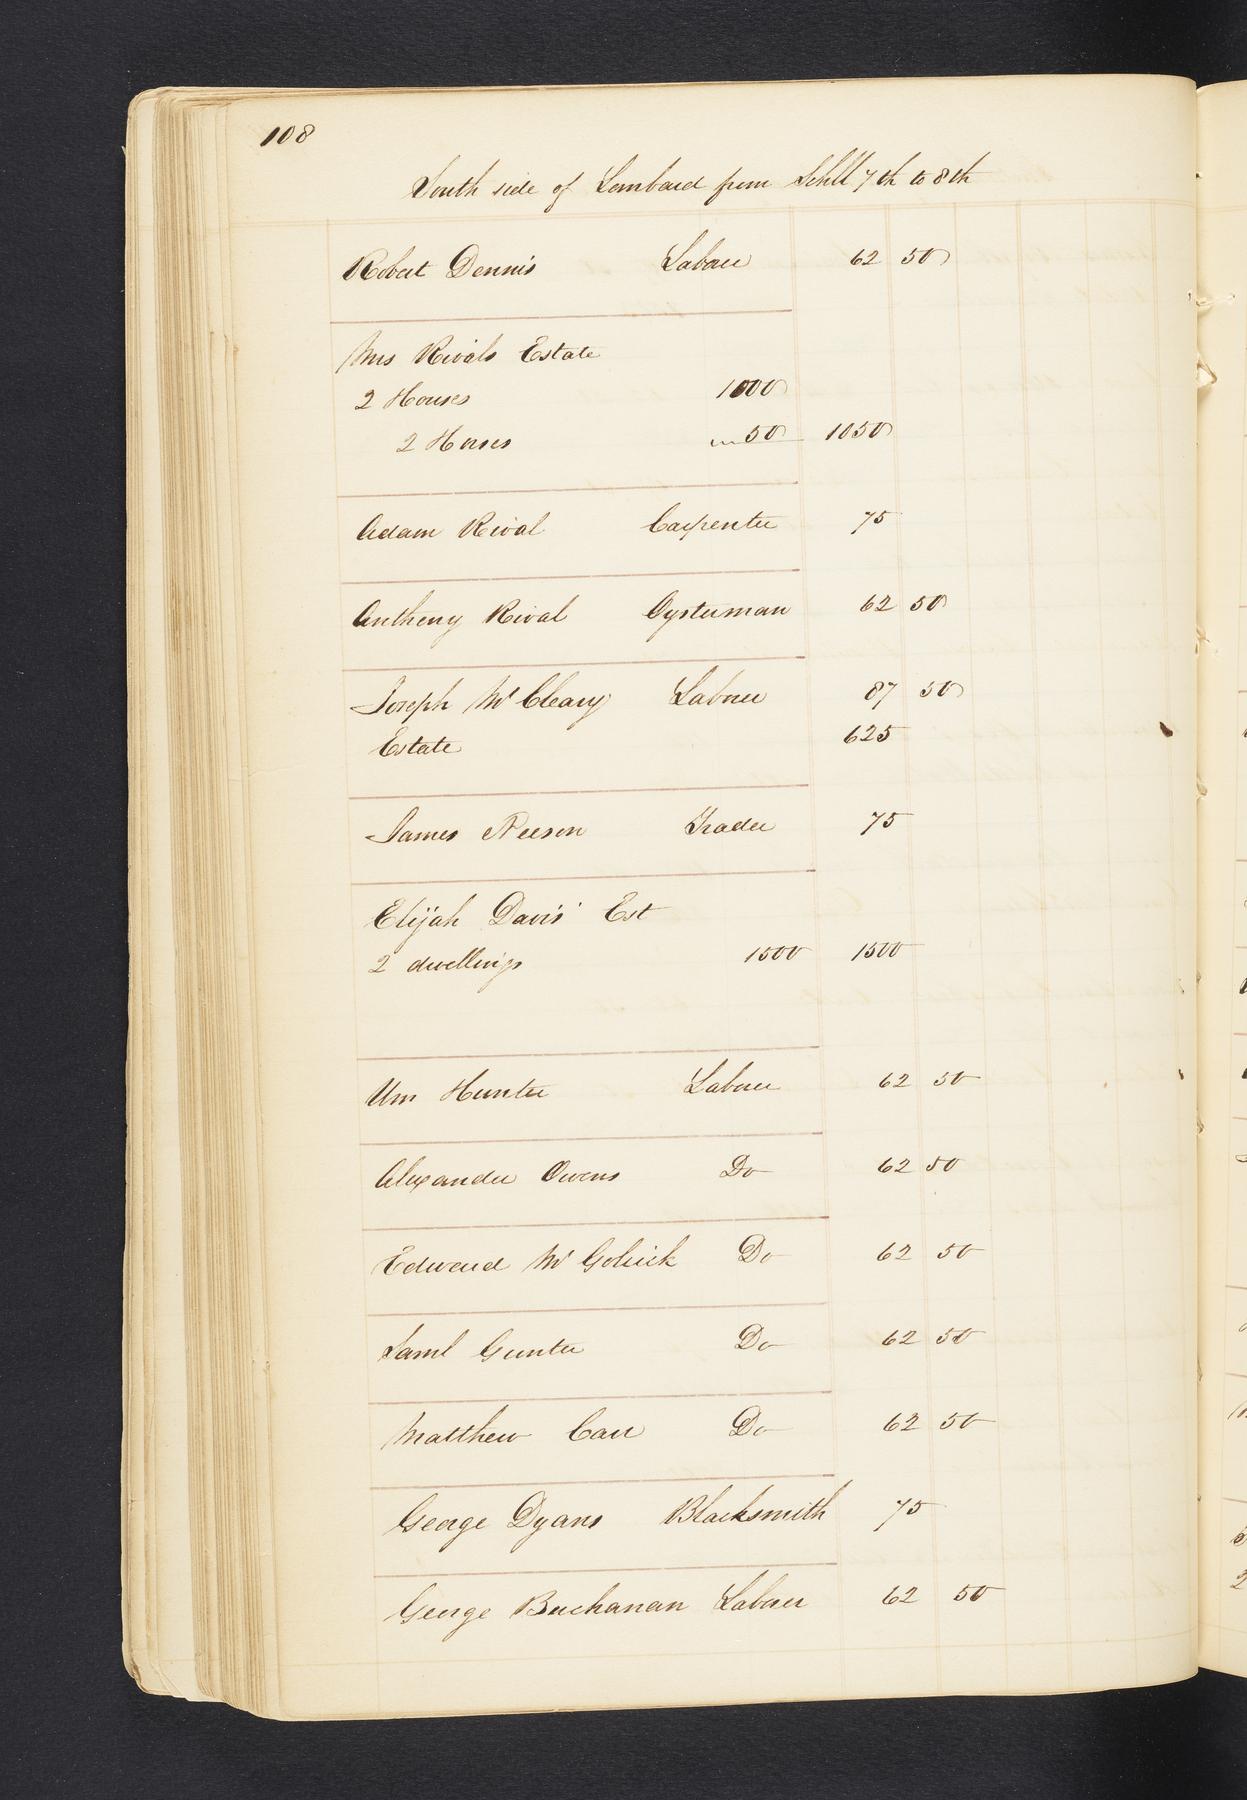 108
South side of Lombard from Schll 7th to 8th
Robert Dennis Laborer 62 50
Mrs Rivals Estate
2 Houses 1000
2 Horses 50 1050
Adam Rival Carpenter 75
Anthony Rival Oysterman 62 50
Joseph McCleary Laborer 87 50
Estate 625
James Neeson Trader 75
Elijah Davis' Est
2 dwellings 1500 1500
Wm Hunter Laborer 62 50
Alexander Owens Do 62 50
Edward McGolrick Do 62 50
Saml Gunter Do 62 50
Matthew Carr Do 62 50
George Dyans Blacksmith 75
George Buchanan Laborer 62 50